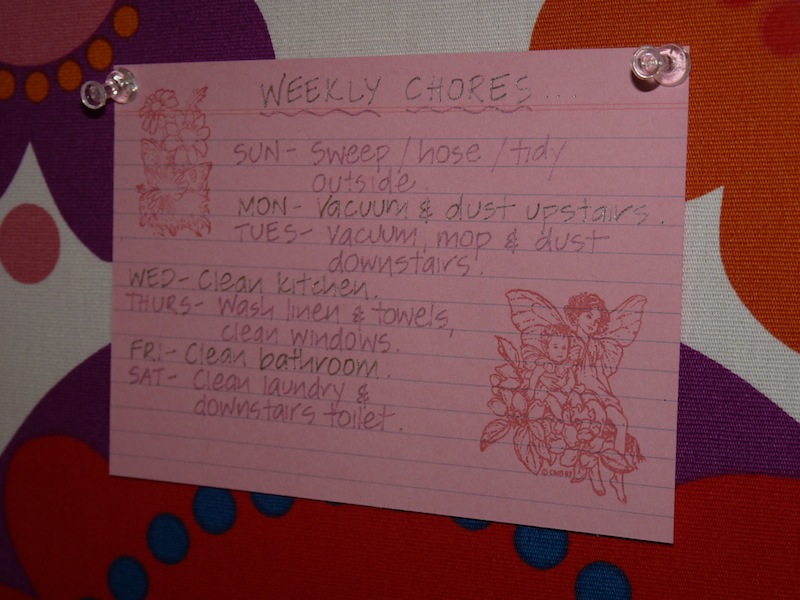 WEEKLY CHORES...
SUN- Sweep/hose/tidy
outside.
MON- Vacuum & dust upstairs.
TUES- Vacuum, mop & dust
downstairs.
WED- Clean kitchen.
THURS- Wash linen & towels,
clean windows.
FRI- Clean bathroom.
SAT- Clean laundry &
downstairs toilet.